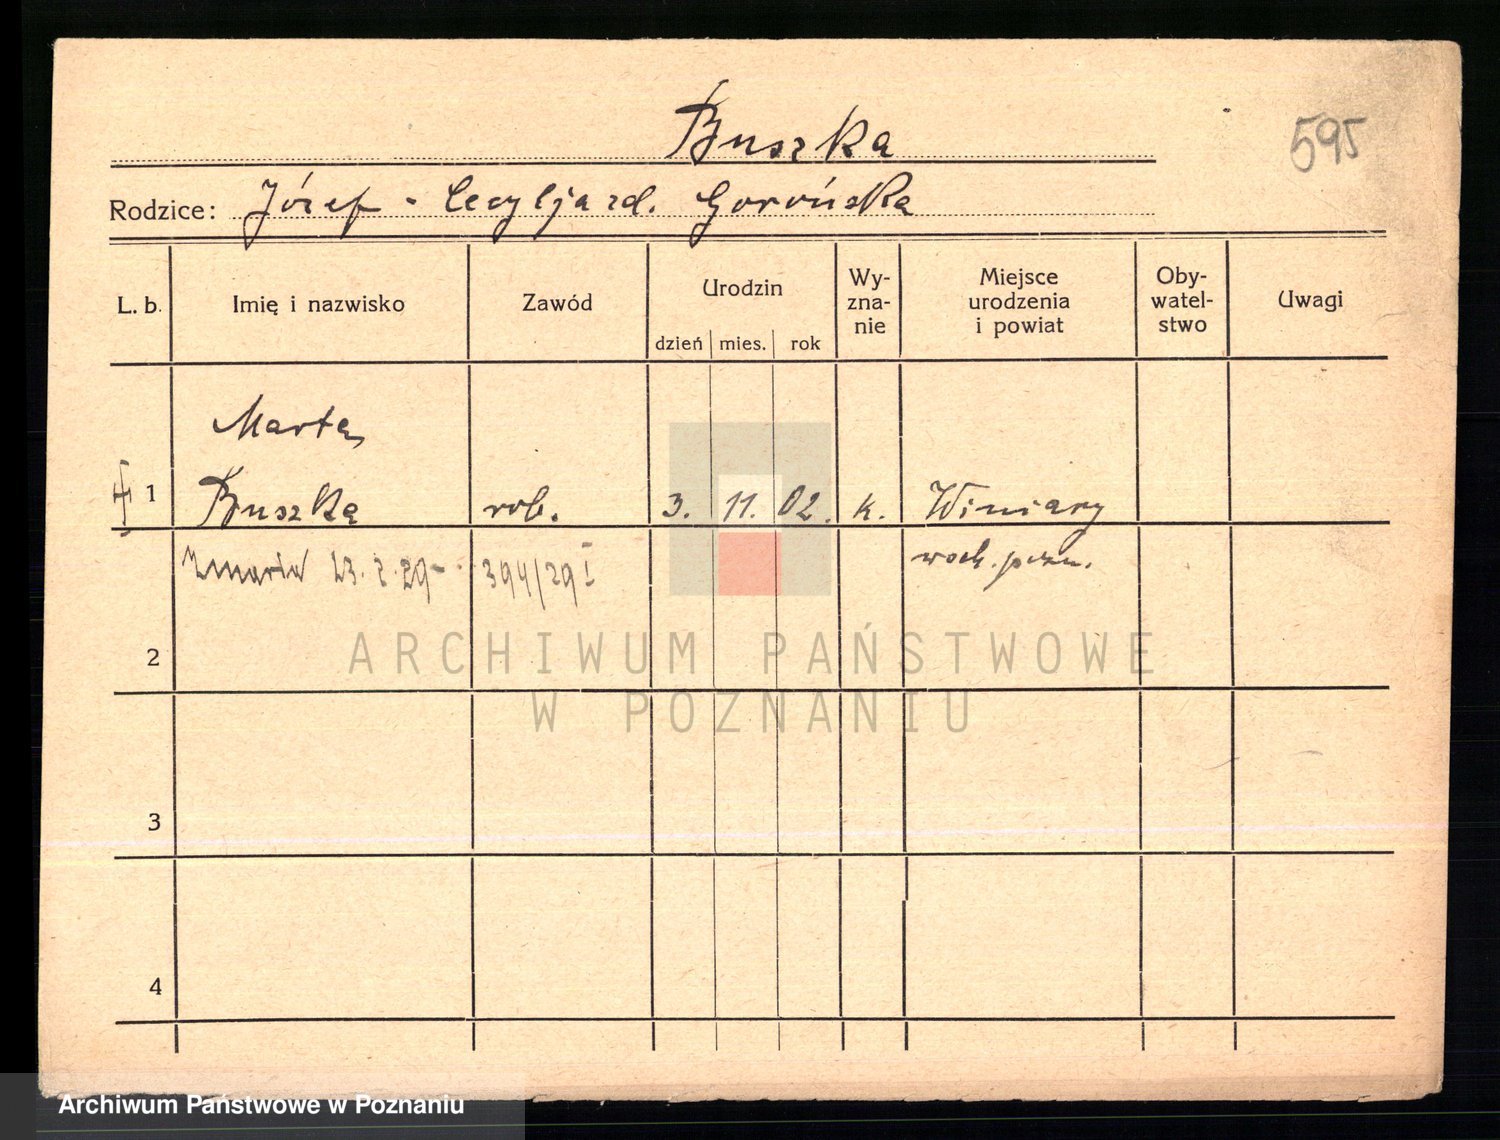 Buszka
595
Rodzice: Józef - Cecylja zd. Gorońska
L. b. Imię i nazwisko Zawód Urodzin dzień mies. rok Wy-zna-nie Miejsce urodzenia i powiat Oby-watel-stwo Uwagi
Marta
1 Buszka rob. 3. 11. 02. k. Winiary
Zmarła 23. 2. 29 - 394/29 I
2
3
4
ARCHIWUM PAŃSTWOWE
W POZNANIU
Archiwum Państwowe w Poznaniu